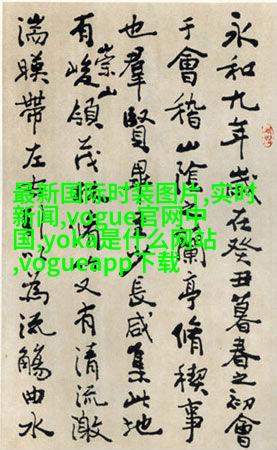 永和九年歲在癸丑暮春之初會
于會稽山陰蘭亭脩稧事
也羣賢畢少長咸集此地
有崇山峻領茂又有清流激
湍暎帶左引以為流觴曲水
最新国际时装图片,实时
新闻,vogue官网中
国,yoka是什么网站
,vogueapp下载